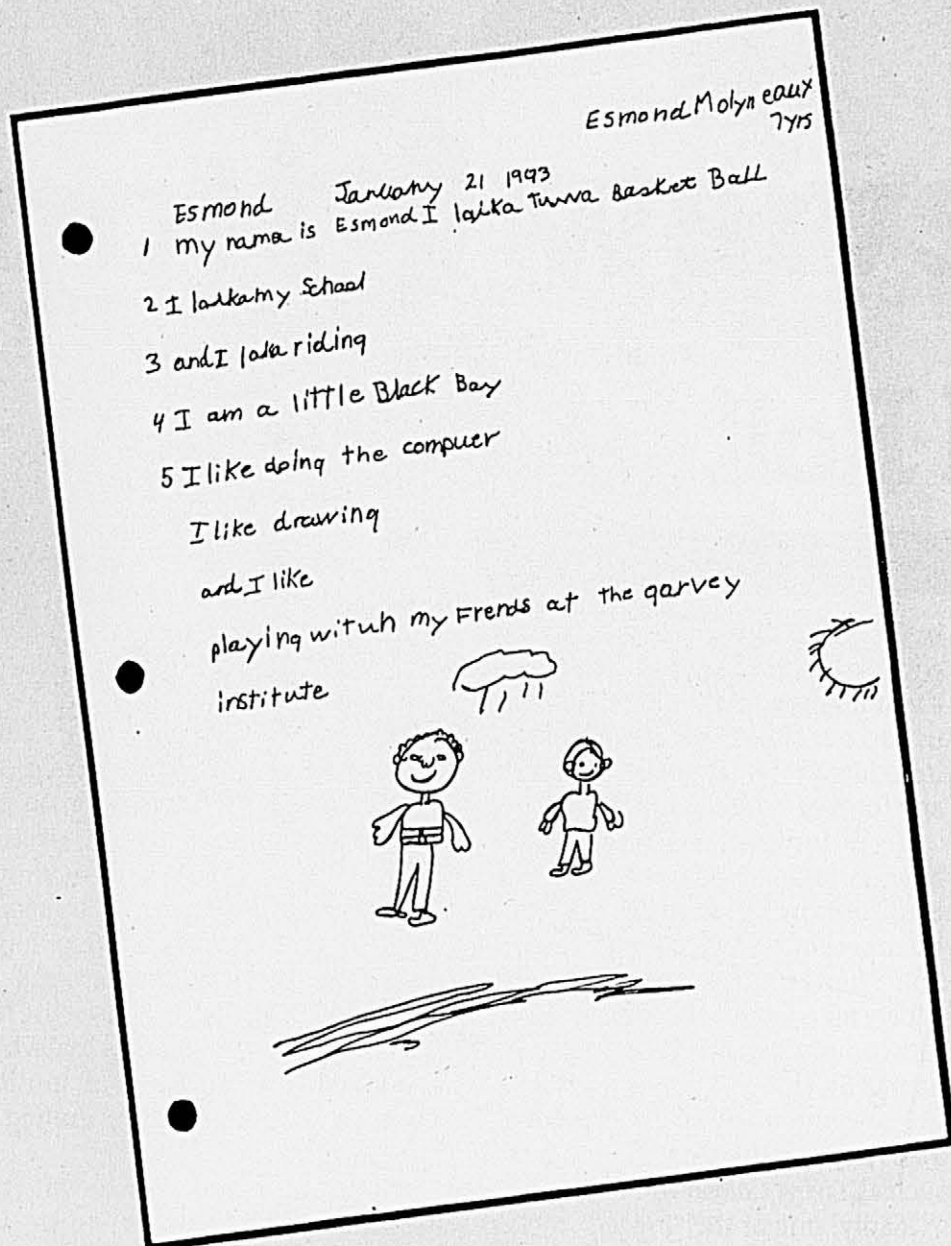 Esmond Molyneaux
7yrs
Esmond January 21 1993
1 my nama is Esmond I laika Tuwa Basket Ball
2 I laikamy School
3 and I laka riding
4 I am a little Black Boy
5 I like doing the compuer
I like drawing
and I like
playing wituh my Frends at the garvey
institute